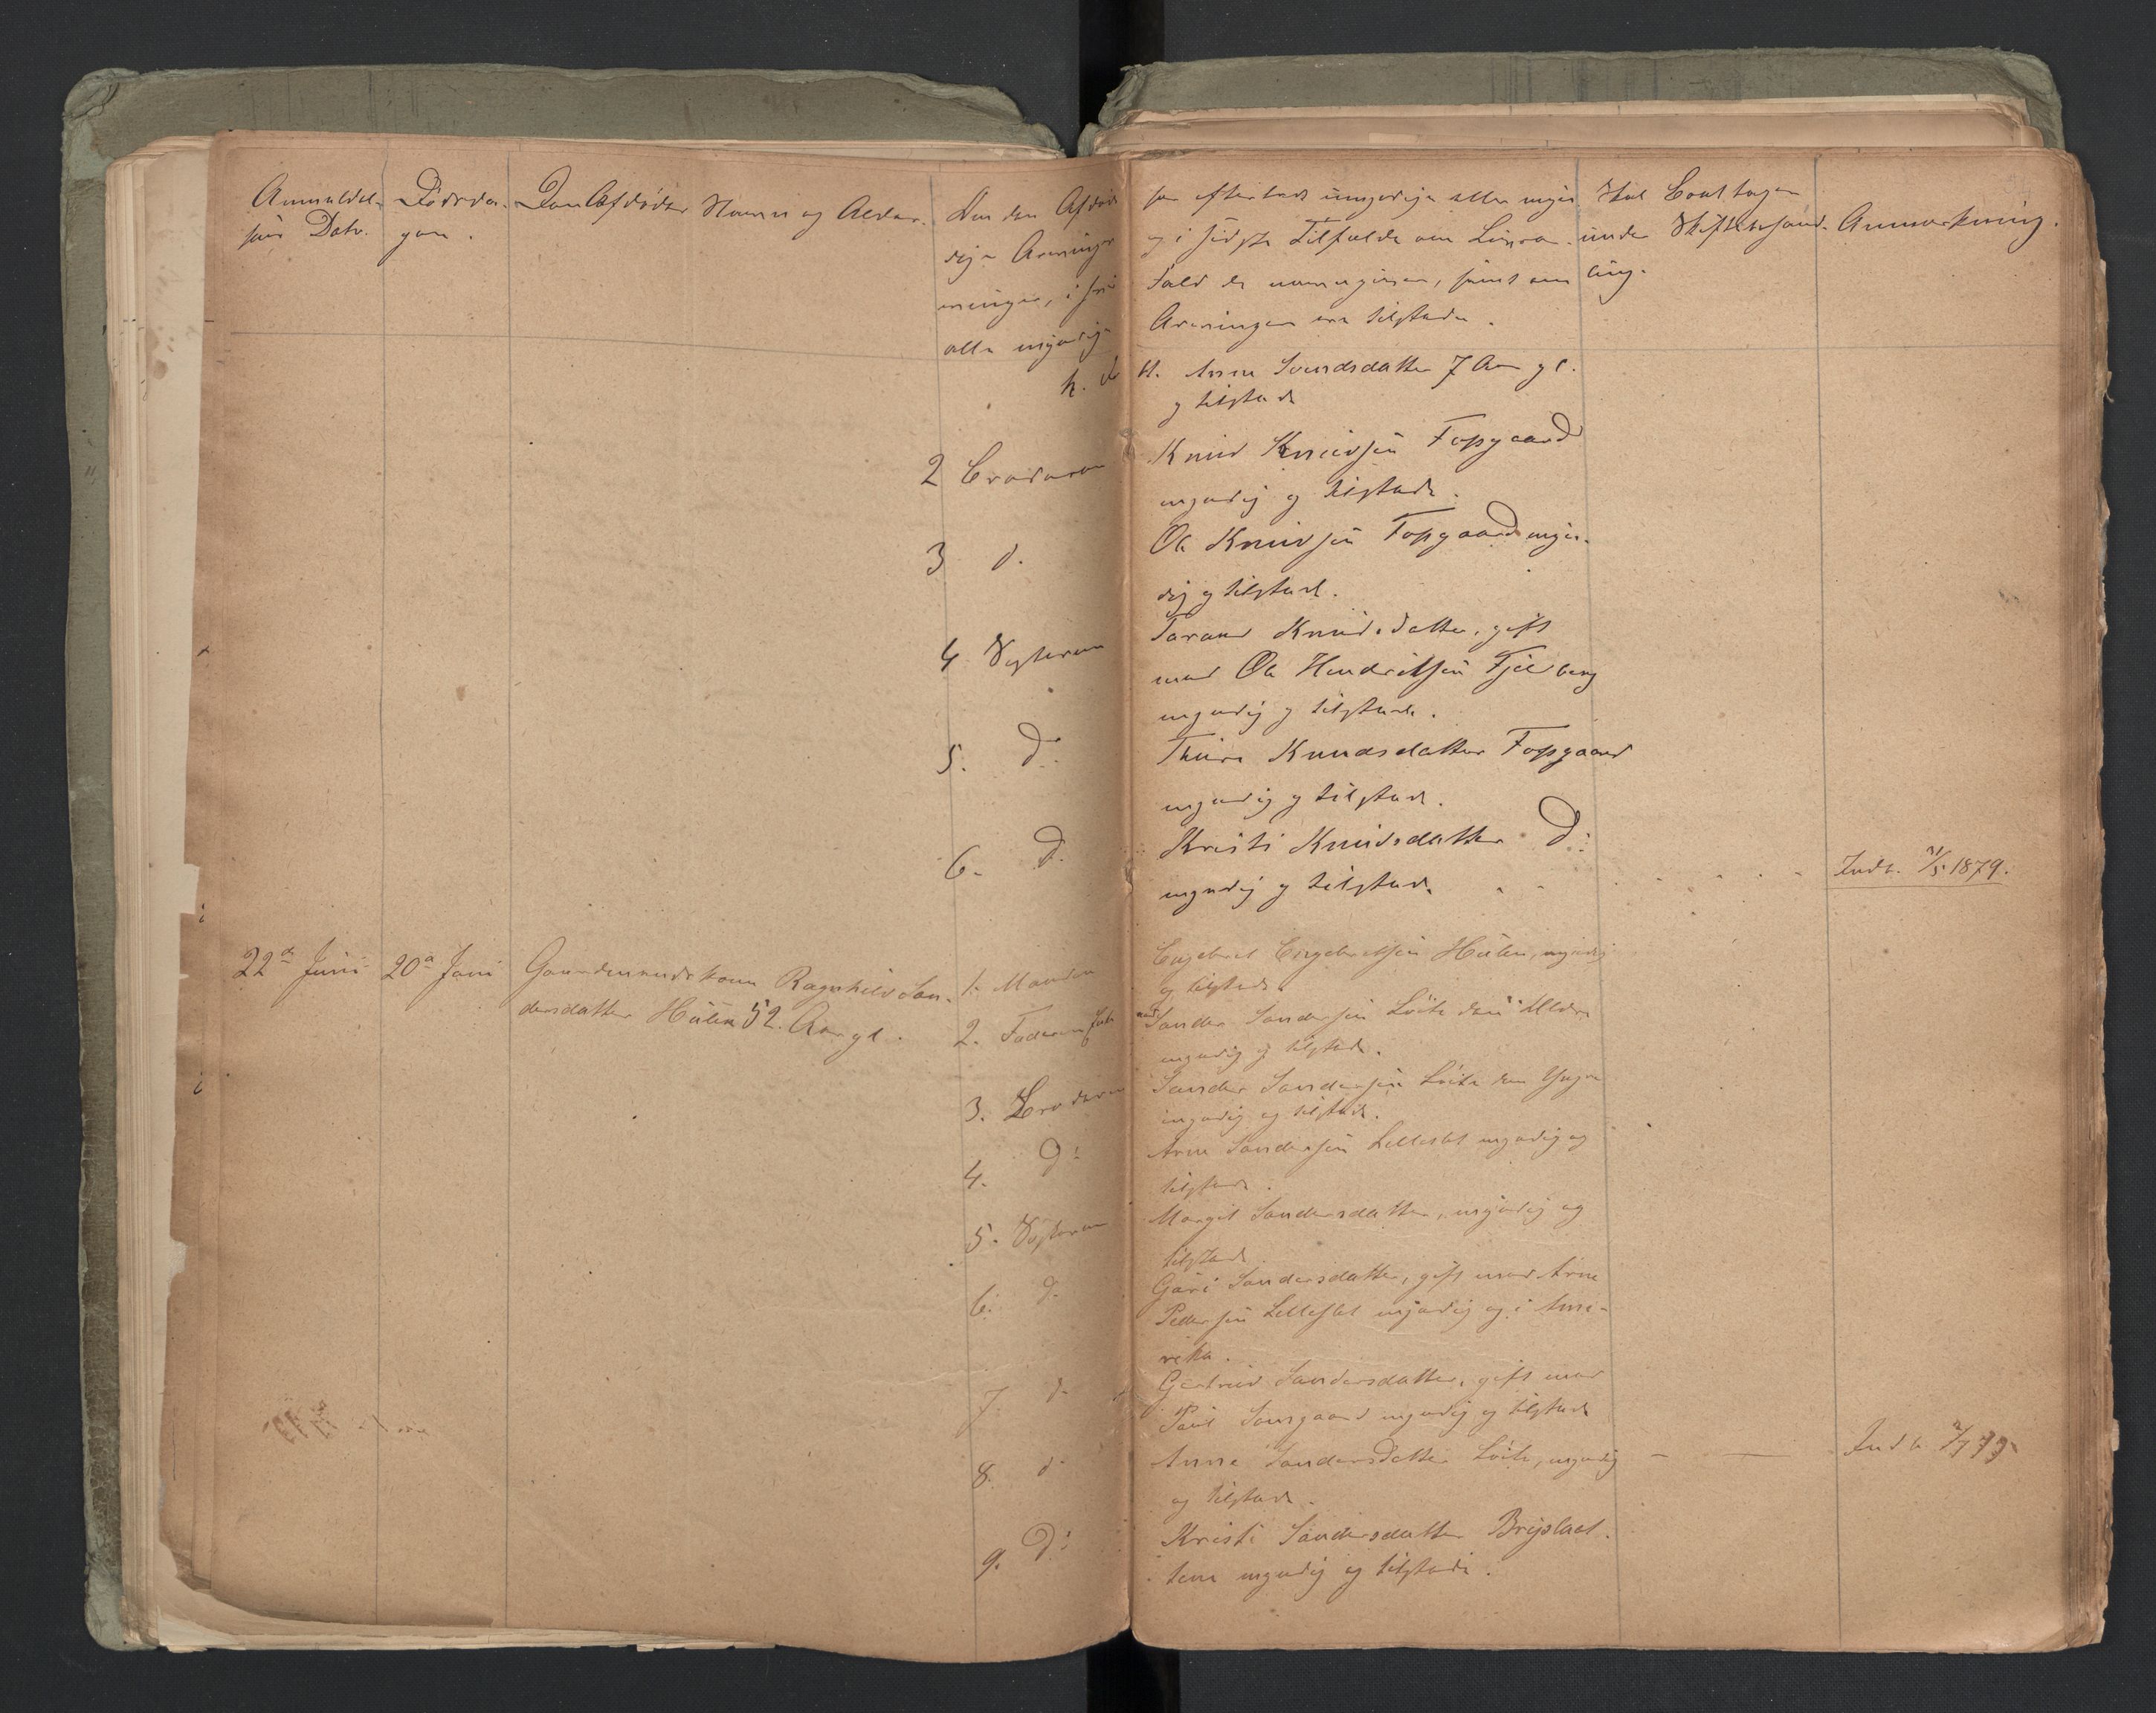 Anmeldel-
sens Dato.
Dødsda-
gen.
Den Afdødes Navn og Alder.
Om den Afdøde
dige Arvinger
ninger, i sid
elle myndige
har efterladt umyndige eller myn
og i sidste Tilfælde om
Fald de myndige, samt om
Arvingerne ere tilstede.
Skal Boet tages
under Skiftebehand-
ling.
Anmærkning.
h. d. Anne Svendsdatter 7 Aar gl.
og tilstede
2 Broderen Knud Knudsen Fopgaard
myndig og tilstede.
3 d. Ole Knudsen Fopgaard myn-
dig og tilstede.
4 Systeren Torand Knudsdatter, gift
med Ole Hendriksen Fjelberg
myndig og tilstede.
5. Do. Thura Knudsdatter Fopgaard
myndig og tilstede.
6. D. Kristi Knudsdatter Do:
myndig og tilstede. Indb. 1/5 1879.
22de Juni 20de Juni Gaardmandskone Ragnhild San-
dersdatter Hulen 52 Aar gl.
1. Manden Engebret Engebretsen Hulen, myndig
og tilstede.
2. Faderen Sander Sandersen Løite den Ældre
myndig og tilstede.
3. Broderen Sander Sandersen Løite den Yngre
myndig og tilstede.
4. Do: Arne Sandersen Lilleslet myndig og
tilstede.
5. Systeren Margit Sandersdatter, myndig og
tilstede
6. d. Guri Sandersdatter, gift med Arne
Pedersen Lilleslet myndig og i Ame-
rika.
7. d. Gjertrud Sandersdatter, gift med
Paul myndig og tilstede
8. d. Anne Sandersdatter Løite, myndig
og tilstede. Indb. 2/7 79
9. Do: Kristi Sandersdatter
myndig og tilstede.